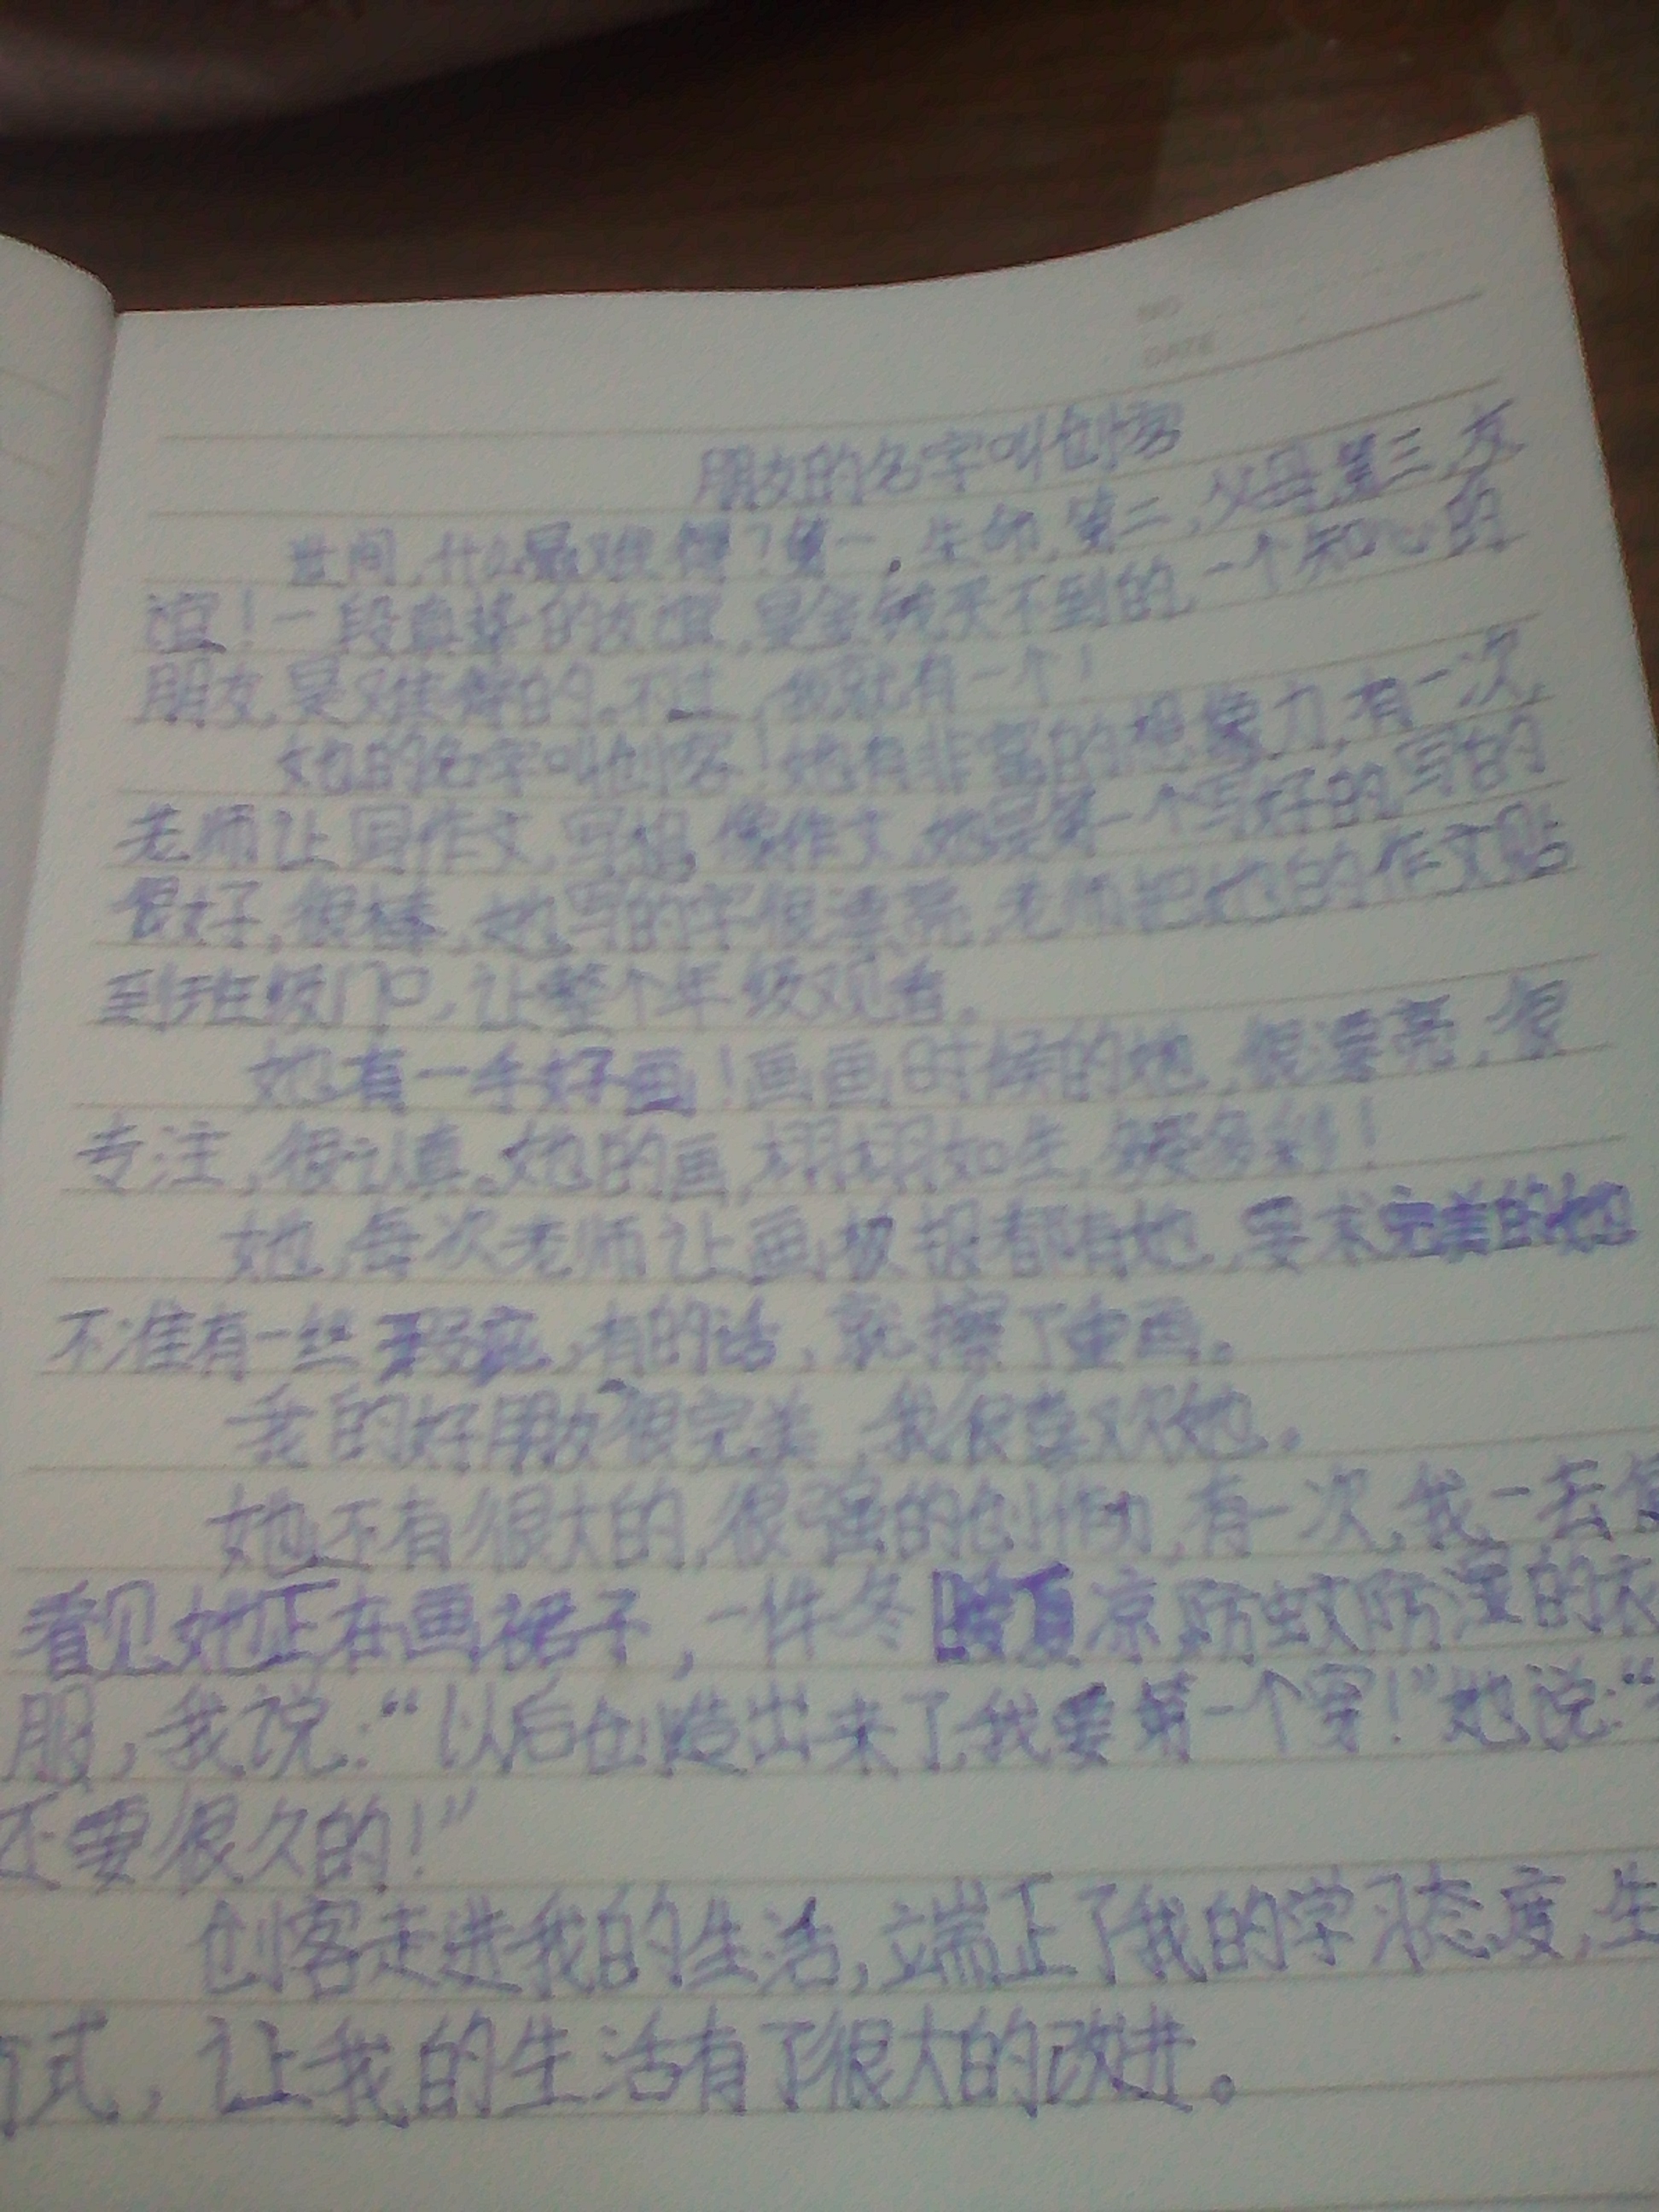 NO
DATE
朋友的名字叫创客
世间,什么最难得?第一,生命,第二,父母,第三,友
谊!一段真挚的友谊,是金钱买不到的,一个知心的
朋友,是难得的。不过,我就有一个!
她的名字叫创客!她有非富的想象力,有一次,
老师让写作文,写想像作文,她是第一个写好的,写的
很好,很棒,她写的字很漂亮,老师把她的作文贴
到班级门口,让整个年级观看。
她有一手好画!画画时候的她,很漂亮,很
专注,很认真。她的画,栩栩如生,多彩!
她,每次老师让画板报都有她,要求完美的她
不准有一丝瑕疵,有的话,就擦了重画。
我的好朋友很完美,我很喜欢她。
她还有很大的,很强的创作力,有一次,我一去
看见她正在画裙子,一件冬暖夏凉防蚊防湿的衣
服,我说:“以后创造出来了,我要第一个穿!”她说:“
还要很久的!”
创客走进我的生活,端正了我的学习态度,生
方式,让我的生活有了很大的改进。